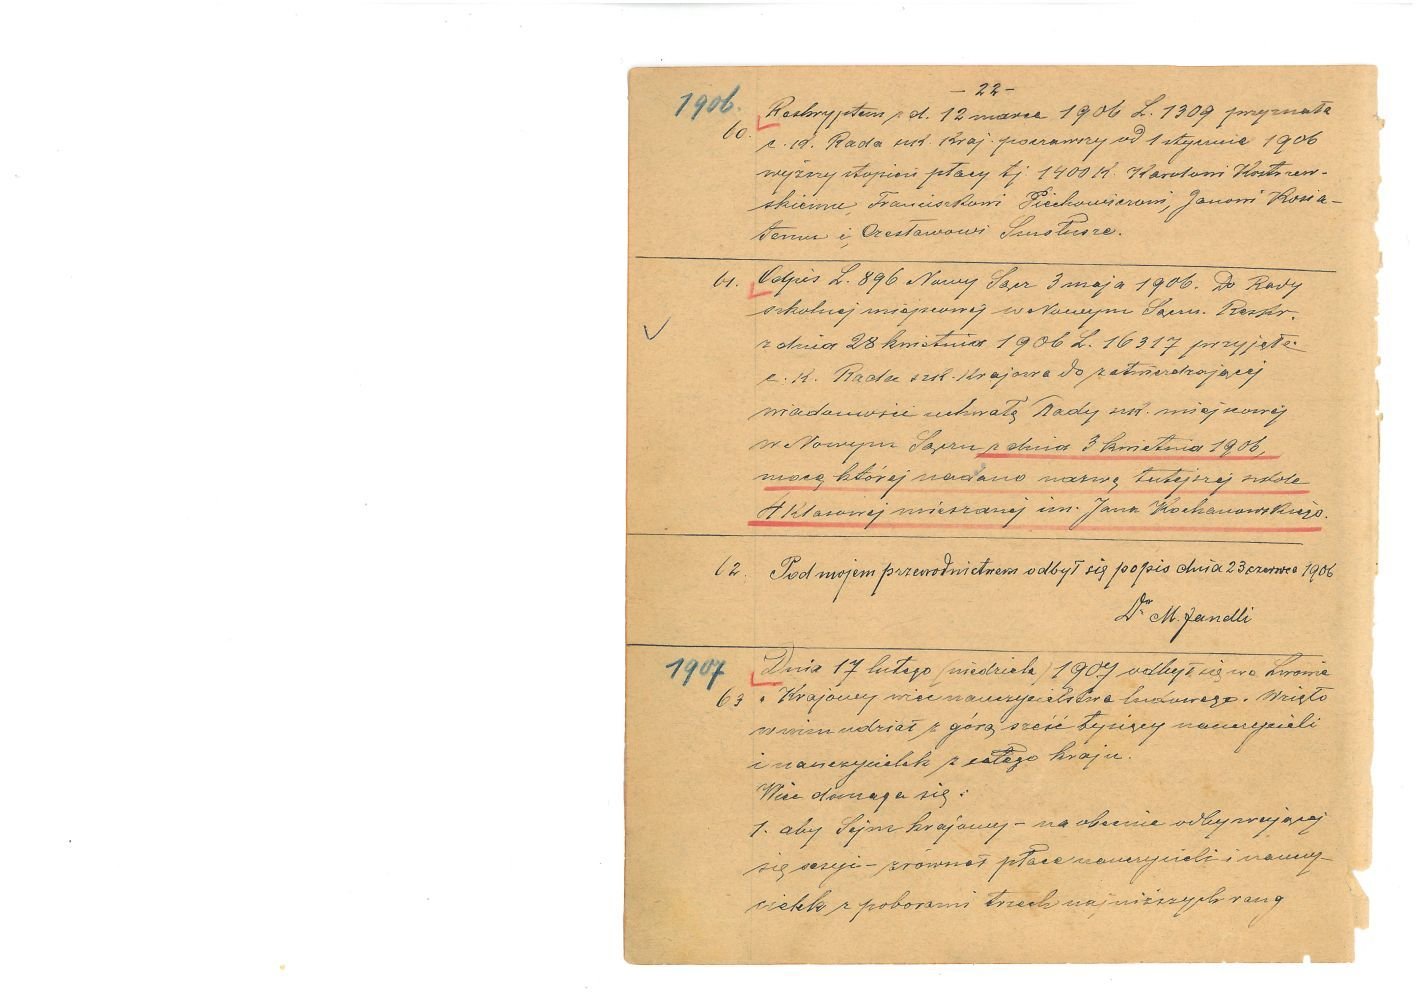 - 22 -
1906.
60. Reskryptem z d. 12 marca 1906 L. 1309 przyznała
c. k. Rada szk. kraj. począwszy od 1 stycznia 1906
wyższy stopień płacy tj 1400 K. Karolowi
skiemu, Franciszkowi Piechowiczowi, Janowi Kosia-
temu i, Czesławowi
61. Odpis L. 896 Nowy Sącz 3 maja 1906. Do Rady
szkolnej miejscowej w Nowym Sączu. Reskr.
z dnia 28 kwietnia 1906 L. 16317 przyjęła
c. k. Rada szk. Krajowa do zatwierdzającej
wiadomości uchwałę Rady szk. miejscowej
w Nowym Sączu z dnia 3 kwietnia 1906,
mocą której nadano nazwę tutejszej szkole
4 klasowej mieszanej im. Jana Kochanowskiego.
62. Pod mojem przewodnictwem odbył się popis dnia 23 czerwca 1906
Dr M. Jandli
1907
63 Dnia 17 lutego (niedziela) 1907 odbył się we Lwowie
Krajowy wiec nauczycielstwa ludowego. Wzięło
w nim udział z górą sześć tysięcy nauczycieli
i nauczycielek z całego kraju.
Wiec domaga się:
1. aby Sejm krajowy - na obecnie odbywającej
się sesyi - zrównał płace nauczycieli i nauczy-
cielek z poborami trzech najniższych rang